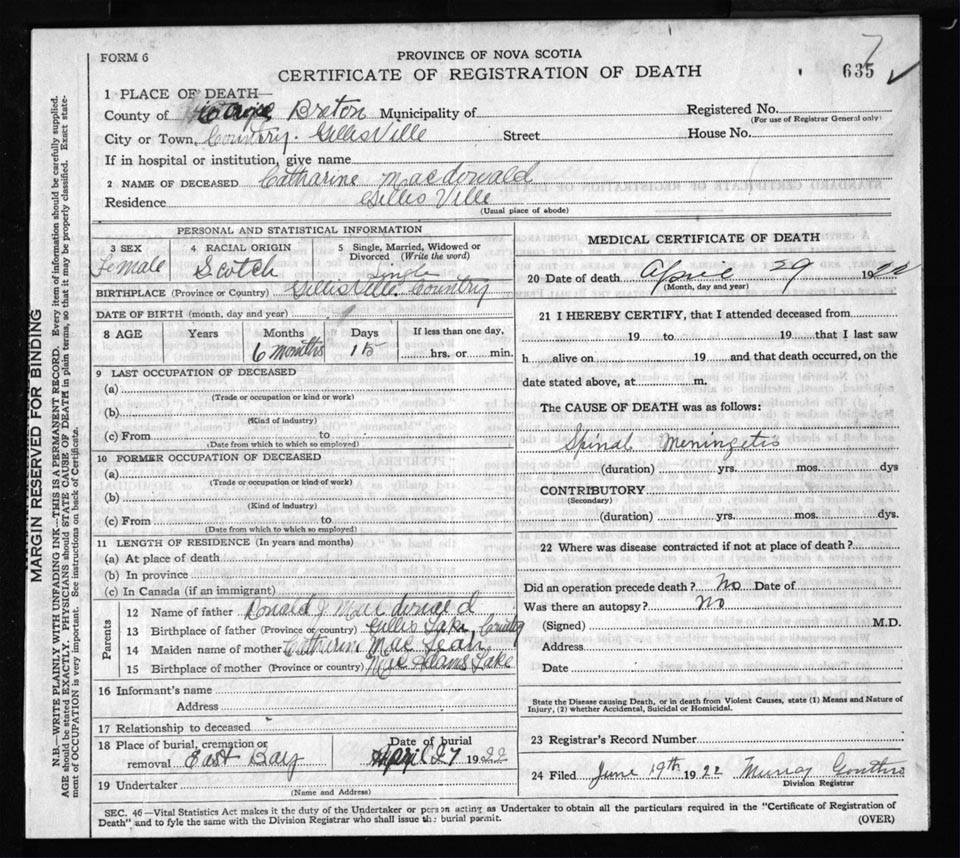 FORM 6
PROVINCE OF NOVA SCOTIA
CERTIFICATE OF REGISTRATION OF DEATH
7
635
1 PLACE OF DEATH—
County of Breton Municipality of
Registered No.
(For use of Registrar General only)
City or Town Country. Gillisville Street House No.
If in hospital or institution, give name
2 NAME OF DECEASED Catharine Macdonald
Residence Gillis Ville
(Usual place of abode)
PERSONAL AND STATISTICAL INFORMATION
3 SEX 4 RACIAL ORIGIN 5 Single, Married, Widowed or Divorced (Write the word)
Female Scotch Single
BIRTHPLACE (Province or Country) Gillisville Country
DATE OF BIRTH (month, day and year)
8 AGE Years Months Days If less than one day,
6 months 15 hrs. or min.
9 LAST OCCUPATION OF DECEASED
(a)
(Trade or occupation or kind or work)
(b)
(Kind of industry)
(c) From to
(Date from which to which so employed)
10 FORMER OCCUPATION OF DECEASED
(a)
(Trade or occupation or kind of work)
(b)
(Kind of industry)
(c) From to
(Date from which to which so employed)
11 LENGTH OF RESIDENCE (In years and months)
(a) At place of death
(b) In province
(c) In Canada (if an immigrant)
Parents
12 Name of father Donald J Macdonald
13 Birthplace of father (Province or country) Gillis Lake, Country
14 Maiden name of mother Catherin MacLean
15 Birthplace of mother (Province or country) MacAdams Lake
16 Informant's name
Address
17 Relationship to deceased
18 Place of burial, cremation or removal East Bay
Date of burial
April 27 1922
19 Undertaker
(Name and Address)
MEDICAL CERTIFICATE OF DEATH
20 Date of death April 29 1922
(Month, day and year)
21 I HEREBY CERTIFY, that I attended deceased from
19 to 19 that I last saw
h alive on 19 and that death occurred, on the
date stated above, at m.
The CAUSE OF DEATH was as follows:
Spinal Meningetis
(duration) yrs. mos. dys
CONTRIBUTORY
(Secondary)
(duration) yrs. mos. dys.
22 Where was disease contracted if not at place of death?
Did an operation precede death? No Date of
Was there an autopsy? No
(Signed) M.D.
Address
Date
State the Disease causing Death, or in death from Violent Causes, state (1) Means and Nature of
Injury, (2) whether Accidental, Suicidal or Homicidal.
23 Registrar's Record Number
24 Filed June 19th 1922 Murray
Division Registrar
SEC. 46—Vital Statistics Act makes it the duty of the Undertaker or person acting as Undertaker to obtain all the particulars required in the "Certificate of Registration of
Death" and to fyle the same with the Division Registrar who shall issue the burial permit.
(OVER)
MARGIN RESERVED FOR BINDING
N.B.—WRITE PLAINLY WITH UNFADING INK—THIS IS A PERMANENT RECORD. Every item of information should be carefully supplied.
AGE should be stated EXACTLY. PHYSICIANS should STATE CAUSE OF DEATH in plain terms, so that it may be properly classified. Exact state-
ment of OCCUPATION is very important. See instructions on back of Certificate.